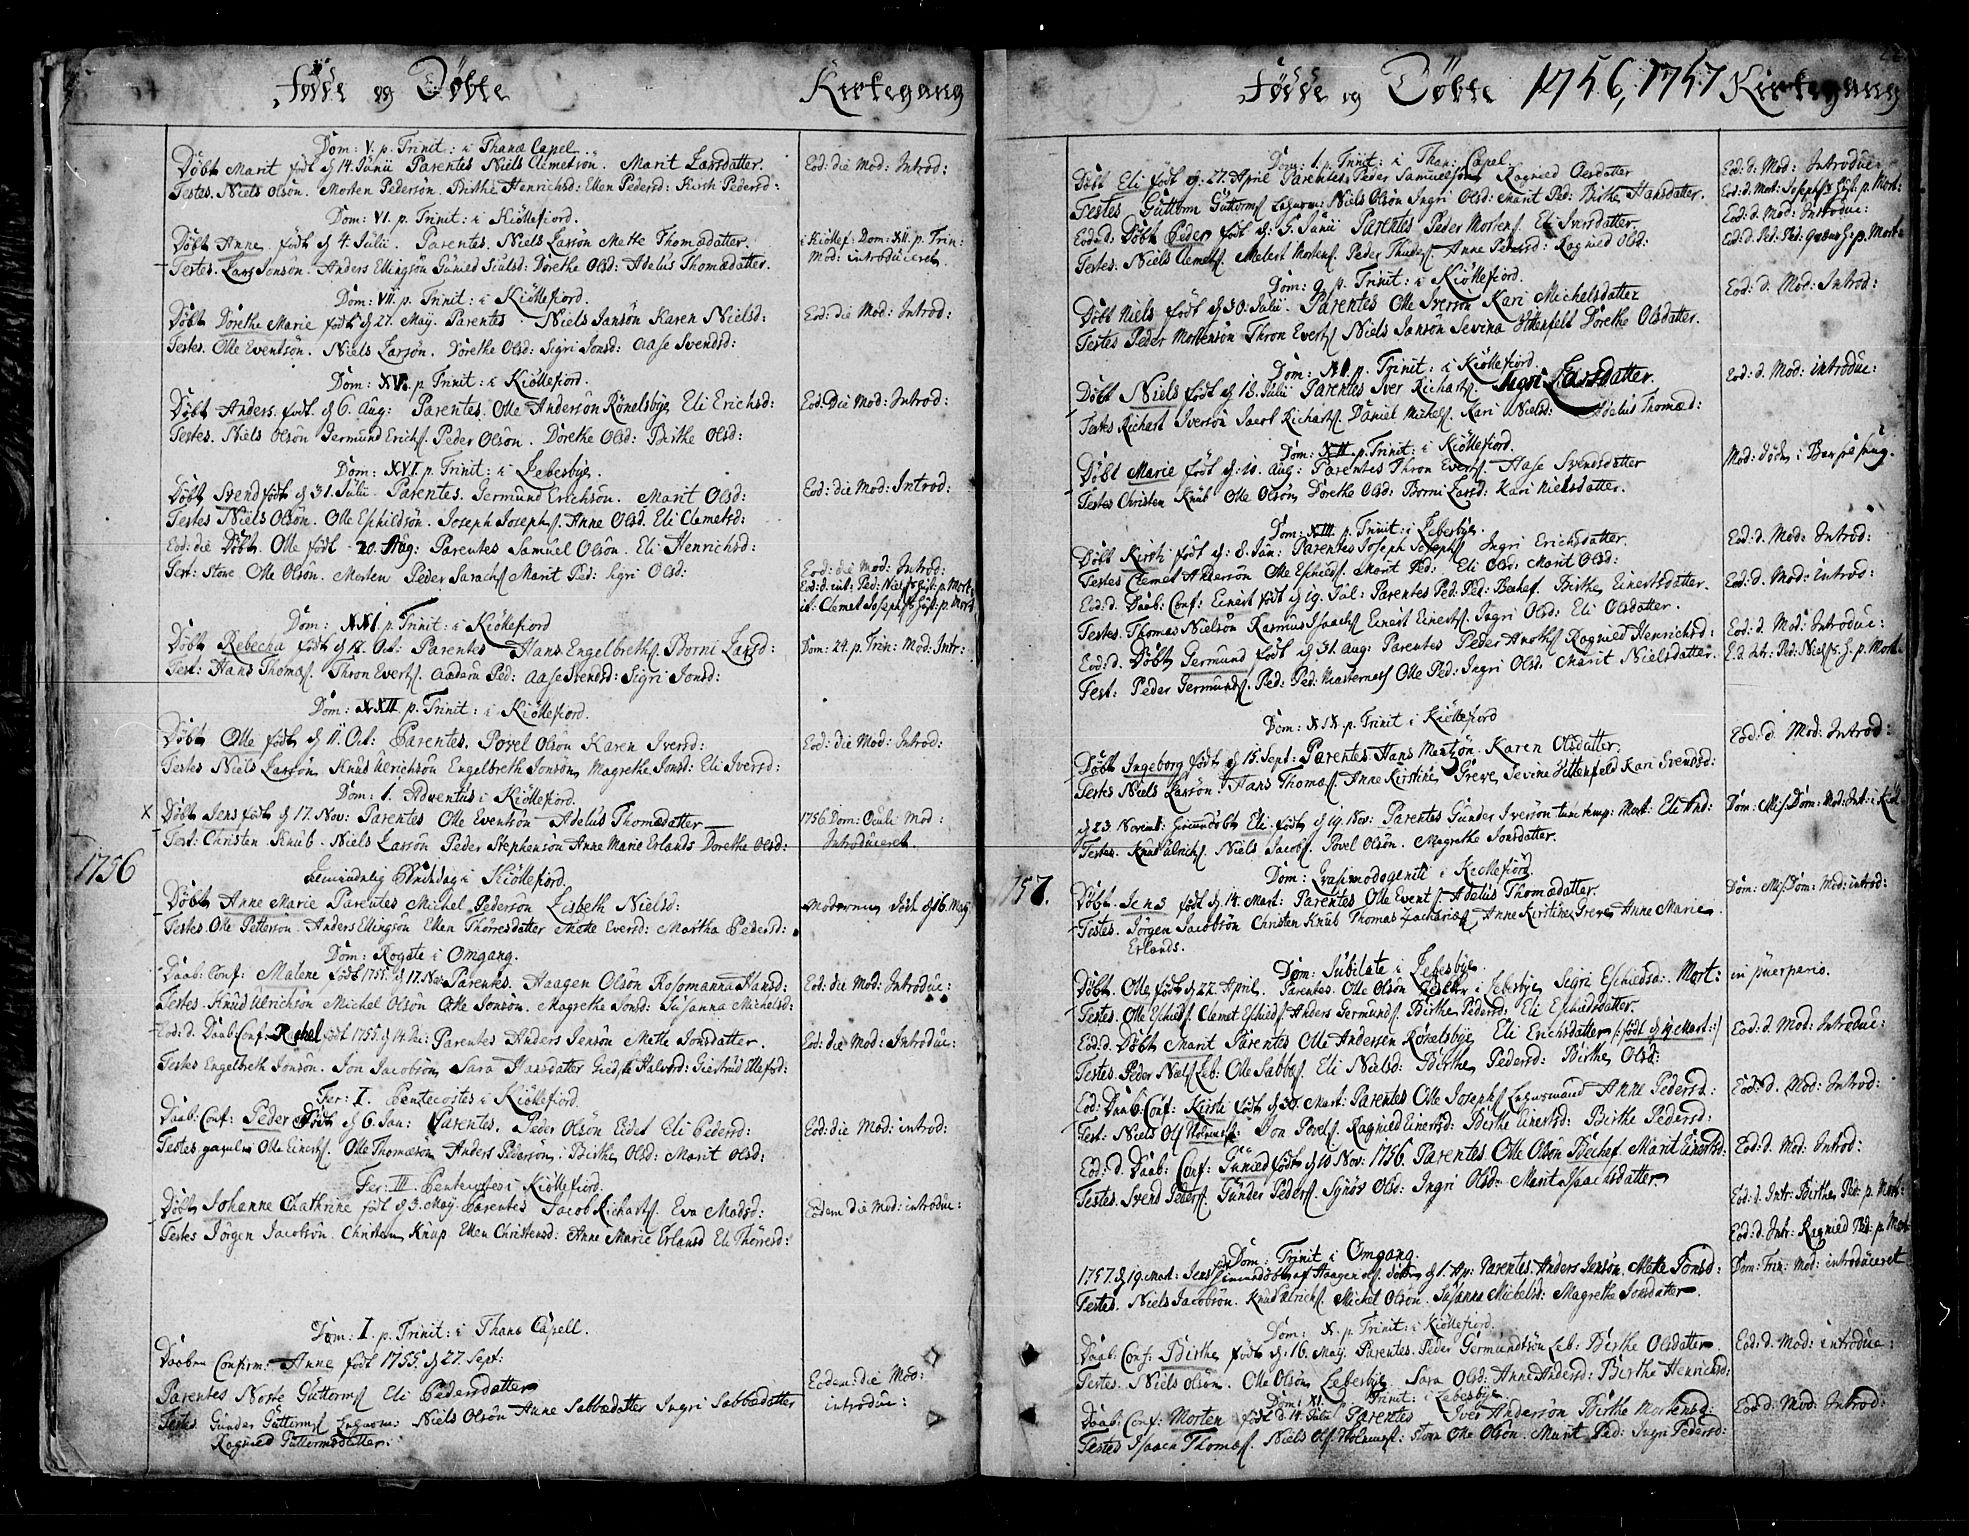 Fødde og Döbte
Kirkegang
Dom: V. p. Trinit: i Thanæ Capel.
Döbt Marit født d 14. Junii Parentes Niels Clemetsön. Marit Larsdatter.
Eod: die Mod: Introd:
Testes. Niels Olsön. Morten Pedersön. Birthe Henrichsd: Ellen Pedersd: Kirsti Pedersd:
Dom: VI. p. Trinit: i Kiöllefiord.
Döbt Anne født d 4. Julii. Parentes. Niels Larsön Mette Thomædatter.
i Kiöllef: Dom: XII. p. Trin:
Testes. Lars Jonsön. Anders Ellingsön Gunied Dorethe Olsd: Adelus Thomædatter.
Mod: introduceret.
Dom: VII. p. Trinit: i Kiöllefiord.
Döbt Dorethe Marie født d 27. May. Parentes. Niels Jansön Karen Nielsd:
Eod: die Mod: Introd:
Testes. Olle Eventsön. Niels Larsön. Dorethe Olsd: Sigri Jonsd: Aase Svendsd:
Dom: XV. p. Trinit: i Kiöllefiord.
Döbt Anders. født. d 6. Aug: Parentes. Olle Andersön Rönelsbye Eli Erichsd:
Eod: Die Mod: Introd:
Testes. Niels Olsön Germund Erichs. Peder Olsön. Dorethe Olsd: Birthe Olsd:
Dom: XVI. p. Trinit: i Lebesbye.
Döbt Svend født d 31. Julii. Parentes. Germund Erichsön. Marit Olsd:
Eod: die Mod: Introd:
Testes Niels Olsön. Olle Eskildsön. Joseph Josephs. Anne Olsd. Eli Clemetsd:
Eod: die Döbt. Olle født 20. Aug: Parentes Samuel Olsön. Eli Henrichsd:
Eod: die Mod: Introd:
Test: Store Olle Olsön. Morten Peder Sarachs Marit Ped: Sigri Olsd:
Dom: XXI. p. Trinit: i Kiöllefiord
Döbt Rebecha født d 18. Oct: Parentes Hans Engelbreths. Borni Larsd:
Dom: 24. p. Trin: Mod: Intr:
Test: Hans Thomæs. Thron Everts. Ped: Aase Svendsd: Sigri Jonsd:
Dom: XXII p. Trinit: i Kiöllefiord.
Döbt Olle født d 11. Oct: Parentes. Povel Olsön Karen Iversd:
Eod: die Mod: Introd:
Testes Niels Larsön. Knud Ulrichsön Engelbreth Jonsön, Magrethe Jonsd: Eli Iversd:
Dom: 1. Adventus i Kiöllefiord.
x Döbt Jens født d 17. Nov: Parentes Olle Eventsön Adelus Thomædatter
1756 Dom: Oculi Mod:
Test: Christen Knub. Niels Larsön Peder Stephensön Anne Marie Erlands Dorethe Olsd:
Introduceret.
1756
Almindelig Bededag i Kiöllefiord.
Döbt Anne Marie Parentes Michel Pedersön Lisbeth Nielsd:
Moderen Död d 16. May
Testes. Olle Pettersön. Anders Ellingsön Ellen Thorresdatter Mette Eversd: Martha Pedersd:
Dom: Rogate i Omgang.
Daab: Conf: Malene født 1755. d 17. Nov. Parentes. Haagen Olsön Rosomanna Hansd:
Eod: die Mod: Introdue:
Testes. Knud Ulrichsön Michel Olsön Olle Jonsön. Magrethe Jonsd: Susanna Michelsd:
Eod: d. Daab: Conf: Rachel født 1755. d 14. Parentes Anders Jensön Mette Jonsdatter.
Eod: die Mod: Introdue:
Testes Engelbreth Jonsön. Jon Jacobsön Sara Hansdatter Halvord:
Fer: I. Pentecostes i Kiöllefiord.
Daab: Conf: Peder født d 6. Jan: Parentes. Peder Olsön Eidet Eli Pedersd:
Eod: die Mod: introd:
Testes gamle Olle Einerts. Olle Thomæsön Anders Pedersön. Birthe Olsd: Marit Olsd:
Fer: III. Pentecostes i Kiöllefiord.
Döbt Johanne Chathrine født d 3. May. Parentes Jacob Richarts. Eva Madsd:
Eodem die Mod: introdue:
Testes Jörgen Jacobsön. Christen Knup Ellen Christensd: Anne Marie Erlansd Eli Thorresd:
Dom: I. p. Trinit: i Thanæ Capell.
Daaben Confirm: Anne født 1755. d 27. Sept:
Parentes Norre Guttorms Eli Pedersdatter
Eodem: die Mod:
Testes. Gunder Guttorms Niels Olsön Anne Sabbædatter Ingri Sabbædatter
introdue:
Ragnied Guttormsdatter.
Fødde og Döbte 1756, 1757 Kirkegang
Dom: 1. p. Trinit: i Than: Capel.
Döbt Eli født d: 27. April Parentes Peder Samuelsön Ragnied Olsdatter
Eod: d. Mod: Introdue:
Testes Guttorm Guttorms Niels Olsön Ingri Olsd: Marit Ped: Birthe Hansdatter.
Eod: d. Döbt Peder født d: 5. Junii Parentes Peder Mortens. Eli Iversdatter.
Eod: d. Mod: Introdue:
Testes. Niels Clemets. Melert Mortens. Peder Anne Pedersd: Ragnied Olsd:
Dom: 9. p. Trinit: i Kiöllefiord.
Döbt Niels født d 30. Julii. Parentes Olle Iversön Kari Michelsdatter
Eod: d. Mod: Introd:
Testes Peder Mortensön Thron Everts. Niels Jansön Sevina Dorethe Olsdatter.
Dom: XI. p. Trinit: i Kiöllefiord.
Döbt Niels født d 18. Julii Parentes Iver Richarts. Sigri Larsdatter.
Eod: d. Mod: introdue:
Testes Richart Iversön Jacob Richarts. Daniel Michels. Kari Nielsd: Adelus Thomæd:
Dom: XII. p. Trinit: i Kiöllefiord.
Döbt Marie født d: 10. Aug: Parentes Thron Everts. Aase Svendsdatter
Mod: döde i Barselseng.
Testes Christen Knub Olle Olsön, Dorethe Olsd: Borni Larsd: Kari Nielsdatter.
Dom: XIII. p. Trinit: i Lebesbye.
Döbt Kirsti født d: 8. Jun: Parentes Joseph Josephs Ingri Erichsdatter
Eod: d. Mod: Introd:
Testes Clemet Andersön Olle Eskilds. Marit Ped: Eli Olsd: Marit Olsd:
Eod: d. Daab: Conf: Einert født d 19. Jul: Parentes Ped: Ped: Bechef. Birthe Einertsdatter.
Eod: d. Mod: Introd:
Testes. Thomas Nielsön Rasmus Isaachs Einert Einerts. Ingri Olsd: Eli Olsdatter.
Eod: d. Döbt Germund født d 31. Aug: Parentes Peder Ragnied Henrichsd:
Eod: d. Mod: Introdue:
Test: Peder Germunds. Ped: Ped: Olle Ped: Ingri Olsd: Marit Nielsdatter.
Dom: XIX. p. Trinit i Kiöllefiord
Döbt Ingeborg født d 15. Sept: Parentes Hans Karen Olsdatter.
Eod: d. Mod: Introd:
Testes Niels Larsön Hans Thomæs. Anne Kirstine Greve Sevine Kari Svendsd:
d 23 Novemb: Eli født d 19. Nov. Parentes Gunder Iversön
Testes. Knud Ulrichs. Niels Jacobs. Povel Olsön. Magrethe Jonsdatter.
1757.
Dom: Qvasimodogeniti i Kiöllefiord.
Döbt. Jens født d 14. Mart: Parentes Olle Events. Adelus Thomædatter.
Testes. Jörgen Jacobsön Christen Knub Thomas Zacharias Anne Kirstine Greve Anne Marie
Erlands.
Dom: Jubilate i Lebesbye
Döbt. Olle født d 22. April. Parentes. Olle Olsön i Lebesbye Sigri Eskildsd: Mort:
in puerperio.
Testes. Olle Eskilds Clemet Eskilds Anders Germunds. Birthe Pedersd: Eli Eskildsdatter.
Eod: d. Döbt Marit Parentes Olle Andersen Rönelsbye Eli Erichsdatter /: født d 19. Mart:/
Eod: d. Mod: Introdue:
Testes. Peder Niels Leb: Olle Sabbes. Eli Nielsd: Birthe Pedersd: Birthe Olsd:
Eod: Daab: Conf: Kirsti født d 30. Mart: Parentes Olle Josephs Anne Pedersd:
Eod: d. Mod: Introd:
Test: Niels Ols Jon Povels. Ragnied Einersd: Birthe Einersd: Birthe Pedersd:
Eod: d. Daab: Conf: Gunied født d 10 Nov. 1756. Parentes. Olle Olsön Bechef. Marit Einersd:
Eod: d. Mod: Introd:
Testes. Svend Peders. Gunder Peders. Synöv Olsd: Ingri Olsd: Marit Isaachsdatter
Eod: d. Intr: Birthe Ped: p. Mort:
Eod: d. Intr: Ragnied Ped: p. Mort:
Dom: Trinit i Omgang.
1757. d 19. Mart: Jens d 1. Ap: Parentes. Anders Jensön. Mette Jonsd:
Dom: Trin: Mod: introduceret
Testes. Niels Jacobsön. Knud Ulrichs. Michel Olsön. Susanna Michelsd: Magrethe Jonsdatter.
Dom: X. p. Trinit: i Kiöllefiord.
Daab: Conf: Birthe født d: 16. May. Parentes. Peder Germundsön Leb: Birthe Olsdatter
Eod: d. Mod: introdue:
Testes. Niels Olsön. Olle Olsön Lebesbye Sara Olsd: Anne Andersd: Birthe Henrichsd:
Dom: XI. p. Trinit: i Lebesbye.
Daab: Conf: Morten født d. 14. Julii Parentes Iver Andersön Birthe Mortensd:
Eod: d. Mod: Introd:
Testes Isaach Thomæs. Niels Ols. Store Olle Olsön. Marit Ped: Ingri Pedersd: